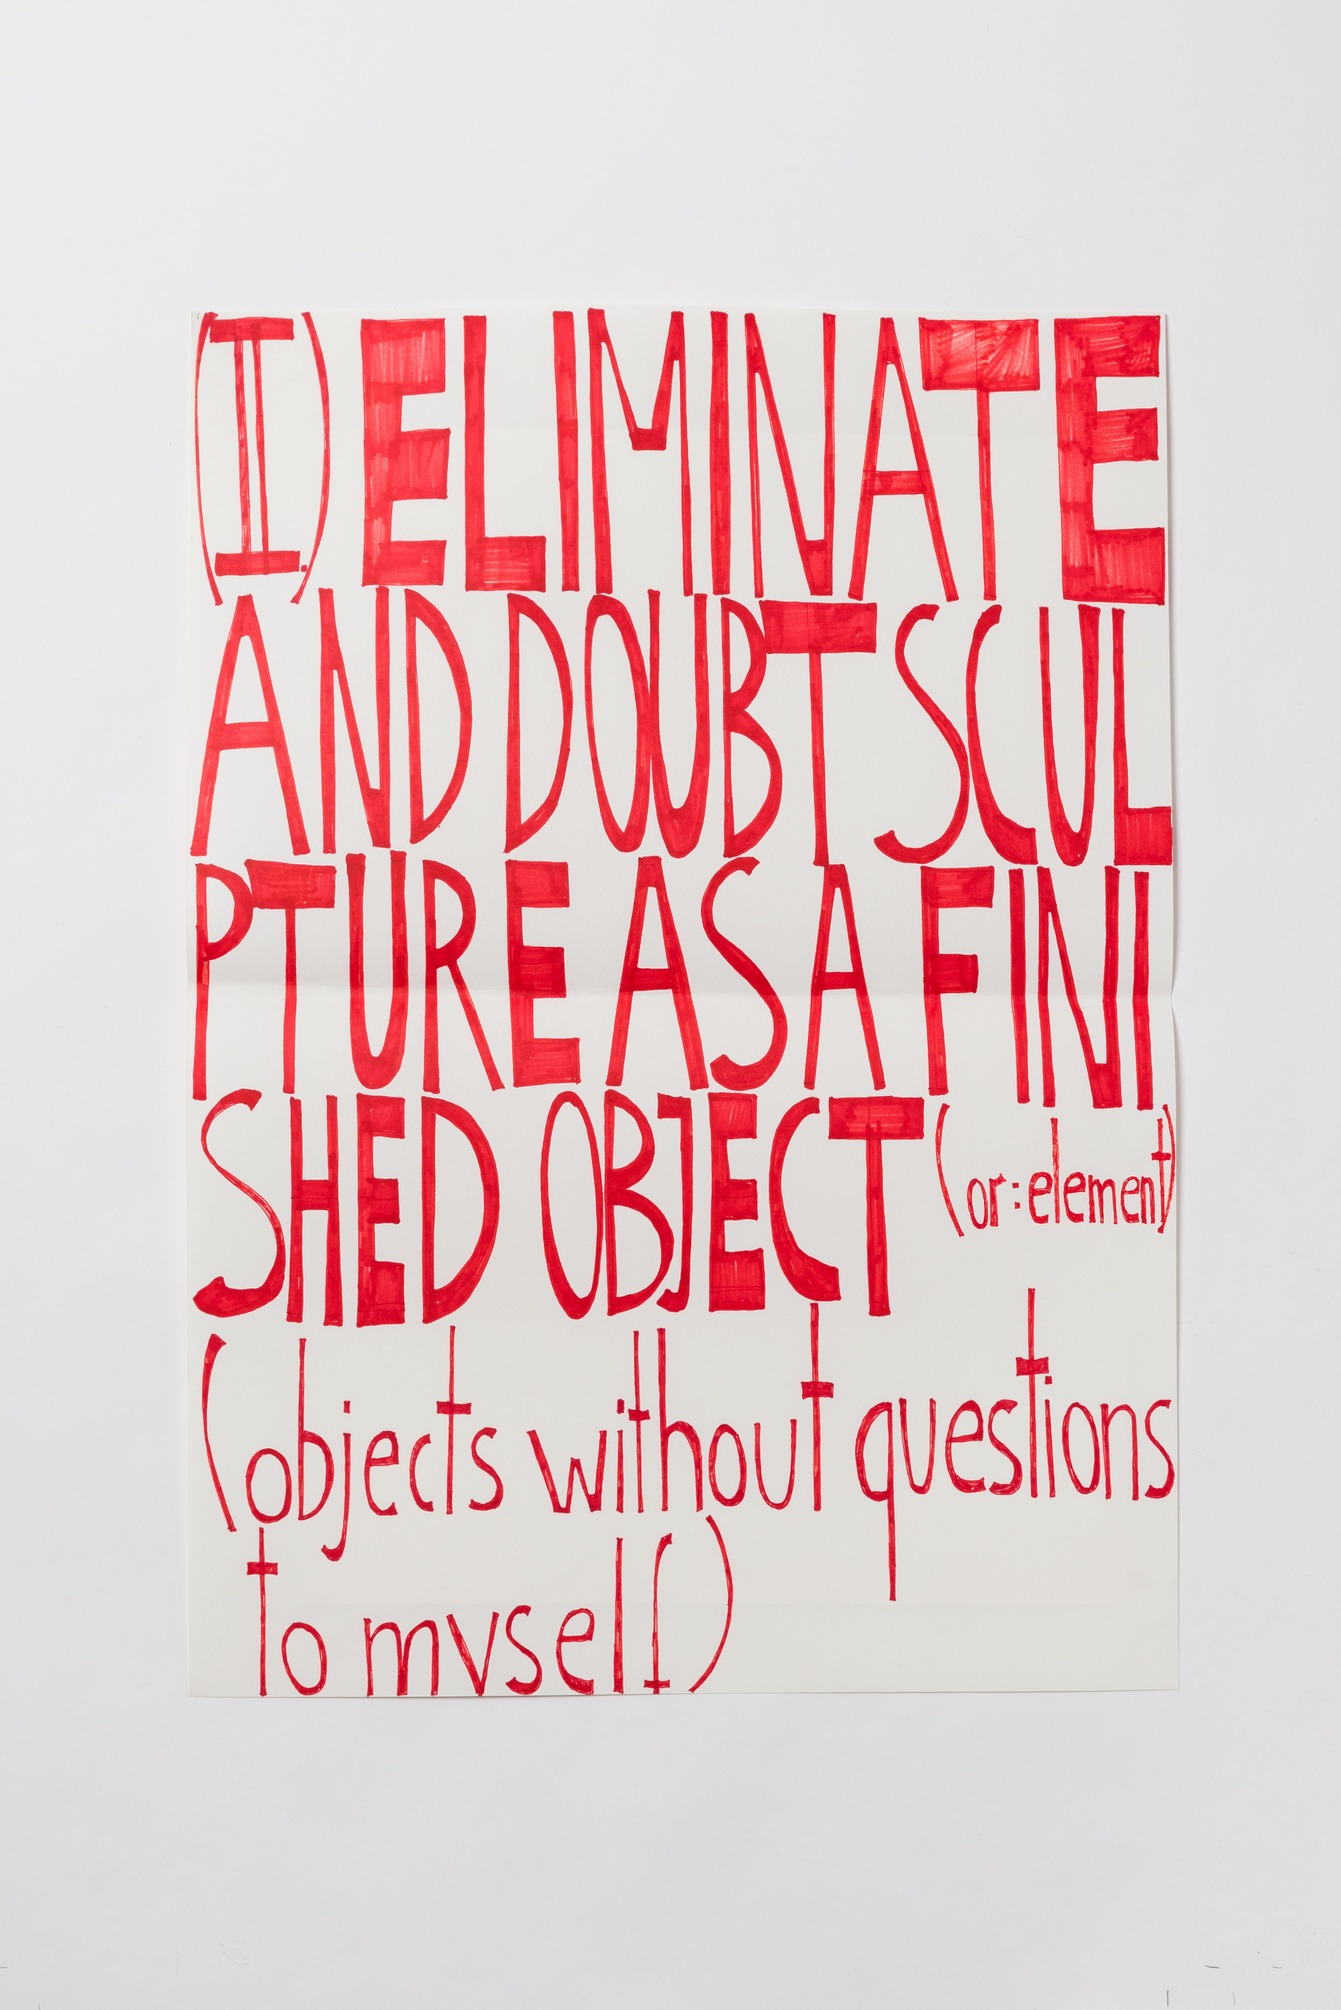 (I.) ELIMINATE
AND DOUBT SCUL
PTURE AS A FINI
SHED OBJECT (or:element)
(objects without questions
to myself)